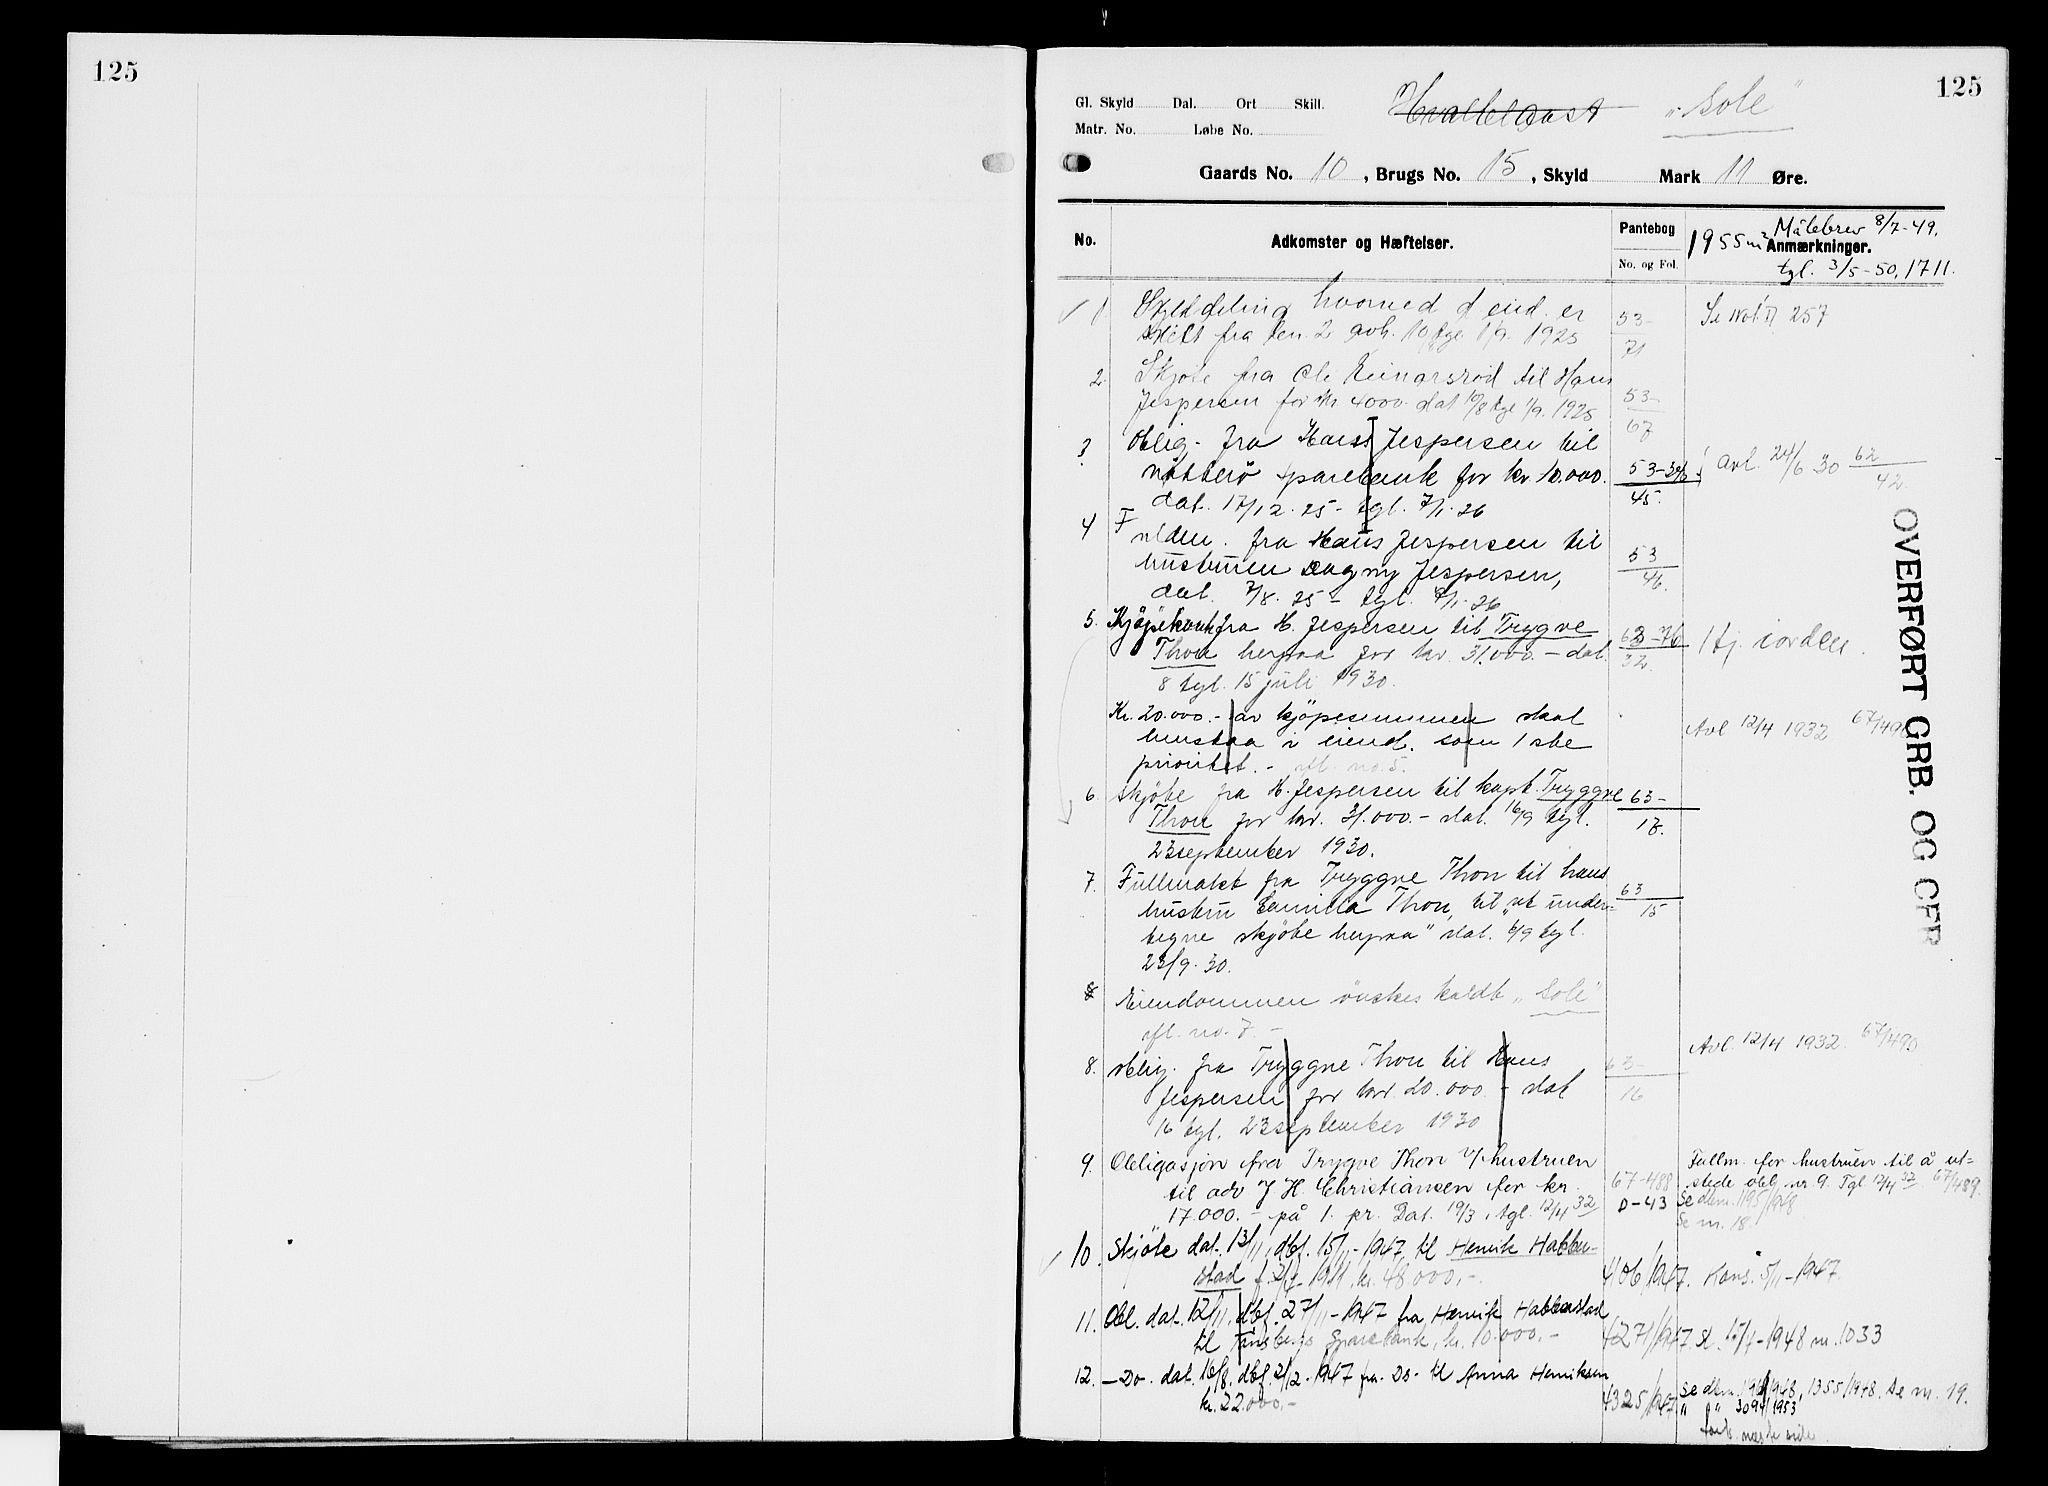 125
125
Gl. Skyld Dal. Ort Skill.
Matr. No. Løbe No.
"Sole"
Gaards No. 10, Brugs No. 15, Skyld Mark 11 Øre.
No.
Adkomster og Hæftelser.
Pantebog
No. og Fol.
Målebrev 8/7-49.
1955 m² Anmærkninger.
tgl. 3/5-50, 1711.
1 Skylddeling hvorved d eiend. er
skilt fra den. 2 avh. 10/8 tgl. 1/9. 1925
53-
71
Se 257
2. Skjøte fra Ole Einarsrød til Hans
Jespersen for kr 4000. dat 10/8 tgl 1/9. 1925
53-
67
3. Oblig. fra Hans Jespersen til
Nøtterø Sparebank for kr. 10.000.
dat. 17/12. 25 - tgl. 7/1. 26
45.
Avl. 24/6 30 62
42.
4 fra Hans Jespersen til
hustruen Dagny Jespersen,
dat. 7/8. 25 - tgl. 7/1. 26
53
46.
5. Kjøpekontr. fra H. Jespersen til Trygve
Thon herpaa for kr. 31.000. - dat.
8 tgl. 15 juli 1930.
32.
Kr. 20.000.- av kjøpesummen skal
henstaa i eiend. som 1ste
prioritet. - jfl. no. 5.
Avl 12/4 1932 67/490
6. Skjøte fra H. Jespersen til kapt. Tryggve
Thon for kr. 31.000.- dat. 16/9 tgl.
23 september 1930.
63-
17.
7. Fullmakt fra Tryggve Thon til hans
hustru Camilla Thon, til "at under-
tegne skjøte herpaa" dat. 6/9 tgl.
23/9. 30.
63
15
8 Eiendommen ønskes kaldt "Sole"
jfl. no. 7 -
8. Oblig. fra Tryggve Thon til Hans
Jespersen for kr. 20.000 - dat
16 tgl. 23 september 1930
63-
16
Avl. 12/4 1932. 67/490
9. Obligasjon fra Trygve Thon v/hustruen
til adv J. H. Christiansen for kr.
17.000. - på 1. pr. Dat. 19/3, tgl. 12/4 32
67-488
D-43
Fullm. for hustruen til å ut-
stede obl. nr 9. Tgl 12/4 32 67/489.
Se dkm. 1195/1948
Se nr. 18.
10. Skjøte dat. 13/11, dbf. 15/11-1947, til Henrik Habber-
stad f. 1911, kr. 48000,-.
4106/1947. Kons. 5/11-1947.
11. Obl. dat. 12/11, dbf. 27/11-1947 fra Henrik Habberstad
til Tønsbergs Sparebank, kr. 10.000,-
4271/1947 sl. 17/4-1948 nr. 1033
12. -Do- dat. 16/8, dbf. 2/12-1947 fra Do- til Anna Henriksen
kr. 22.000,-
4325/1947
1355/1948. Se nr. 19.
" " 3094/1953
forts. neste side
OVERFØRT GRB. OG CFR